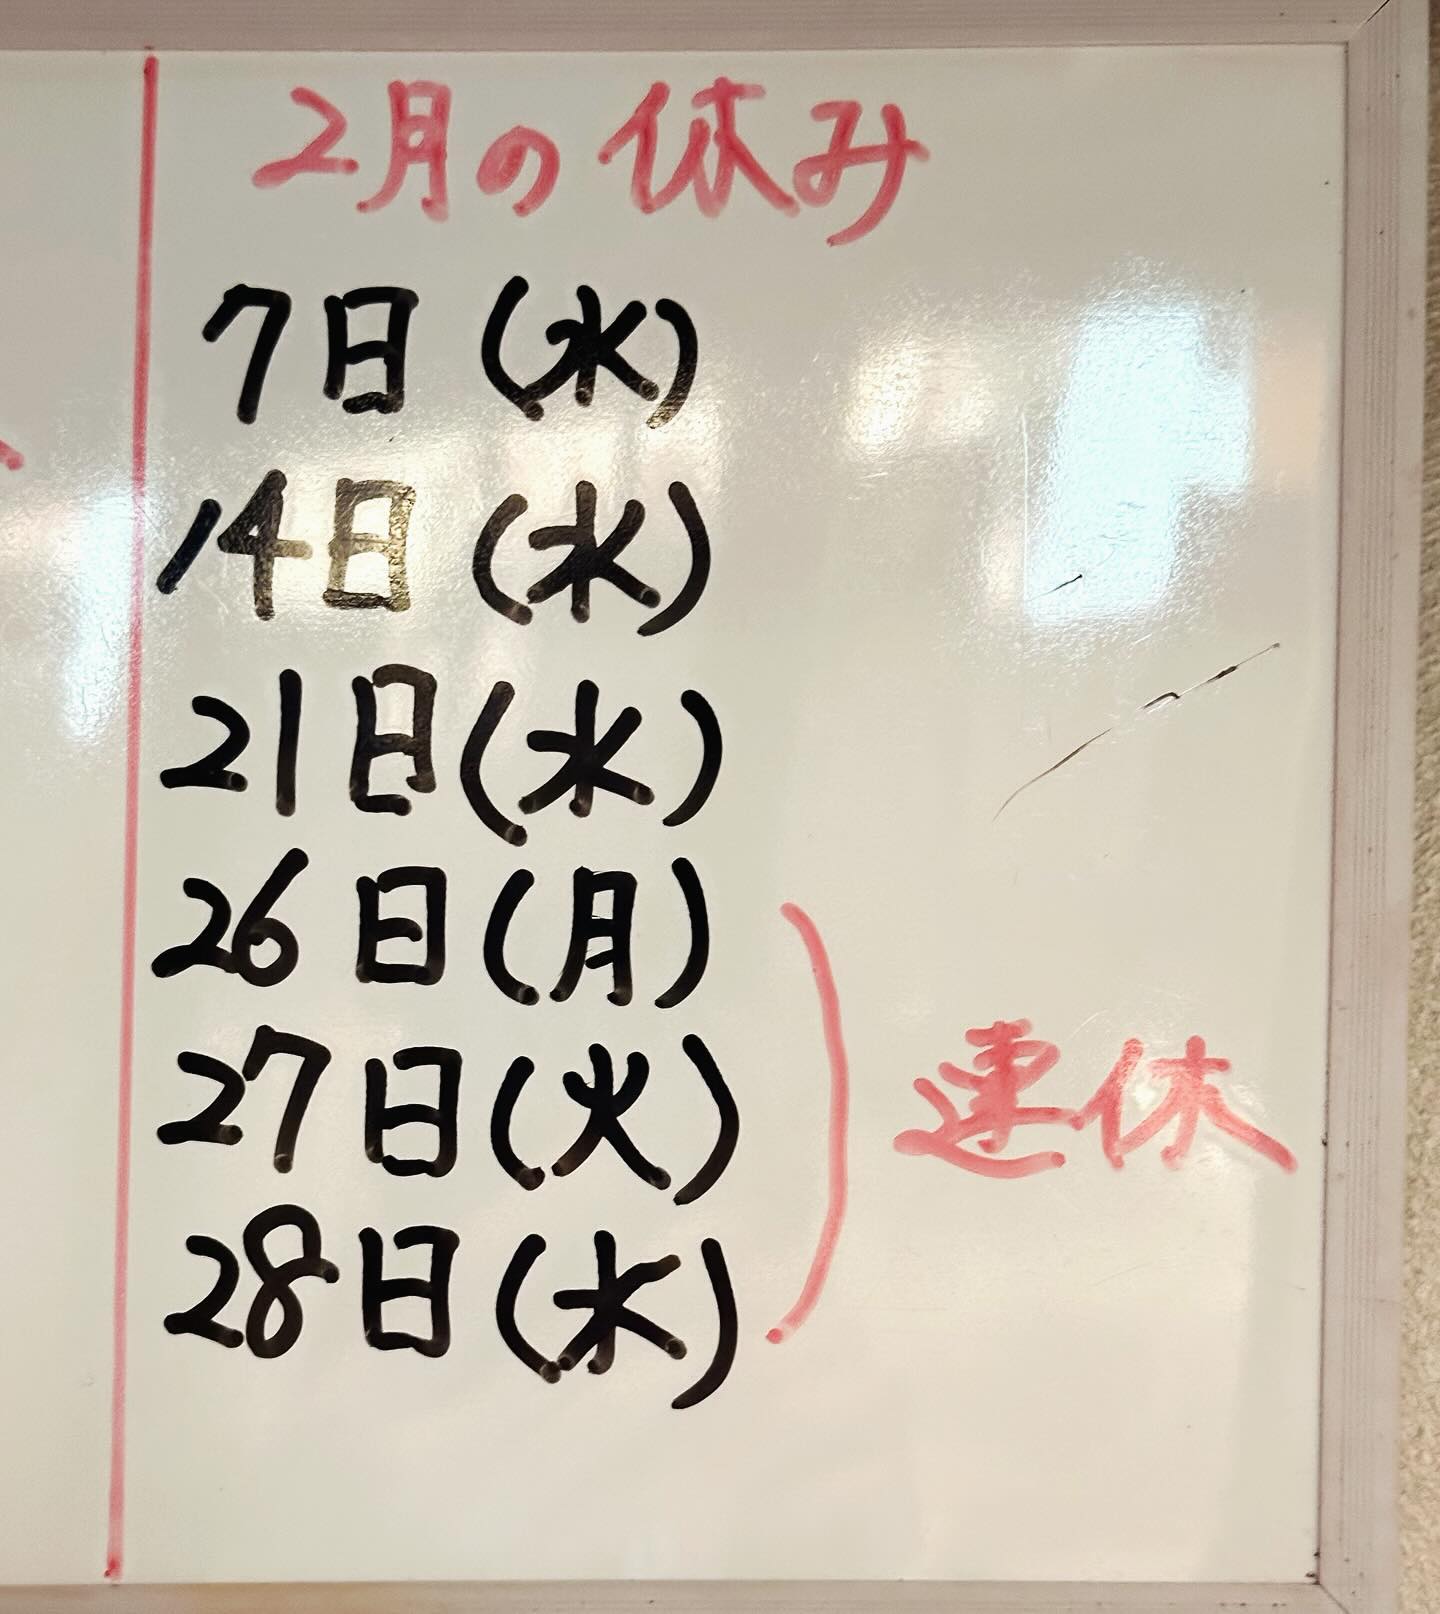 2月の休み
7日(水)
14日(水)
21日(水)
26日(月)
27日(火)
28日(水)
連休